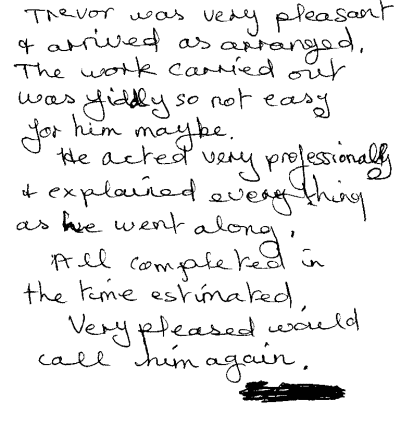 Trevor was very pleasant
& arrived as arranged.
The work carried out
was fiddly so not easy
for him maybe.
He acted very professionally
& explained everything
as he went along.
All completed in
the time estimated.
Very pleased would
call him again.